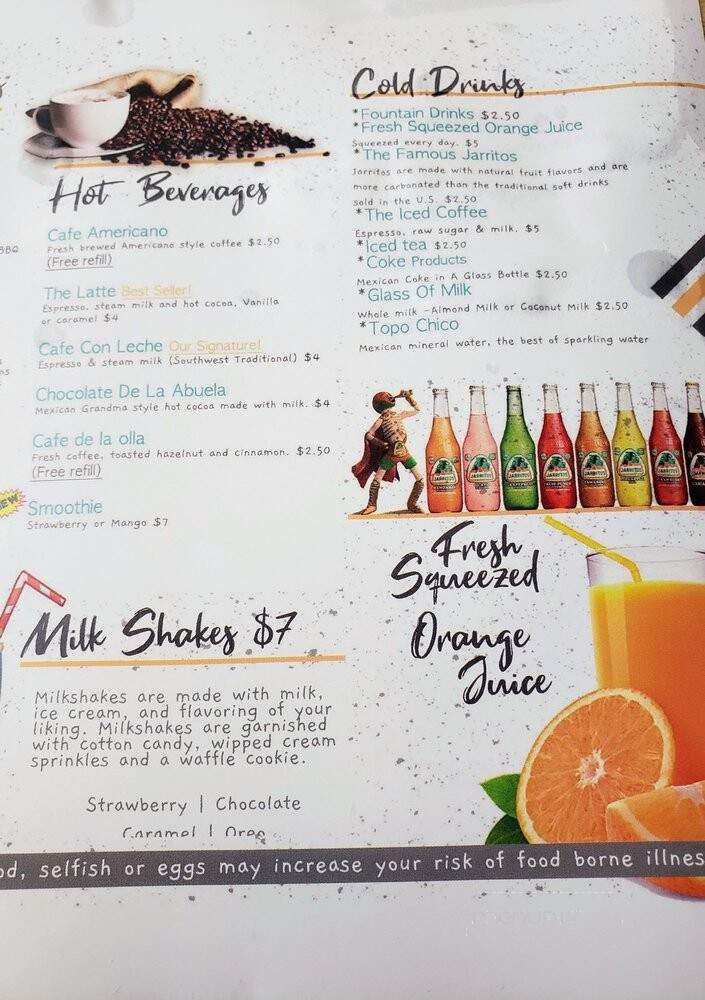 Hot Beverages
Cafe Americano
Fresh brewed Americano style coffee $2.50
(Free refill)
The Latte Best Seller!
Espresso, steam milk and hot cocoa, Vanilla
or caramel $4
Cafe Con Leche Our Signature!
Espresso & steam milk (Southwest Traditional) $4
Chocolate De La Abuela
Mexican Grandma style hot cocoa made with milk. $4
Cafe de la olla
Fresh coffee, toasted hazelnut and cinnamon. $2.50
(Free refill)
Smoothie
Strawberry or Mango $7
Milk Shakes $7
Milkshakes are made with milk,
ice cream, and flavoring of your
liking. Milkshakes are garnished
with cotton candy, wipped cream
sprinkles and a waffle cookie.
Strawberry | Chocolate
Caramel | Oreo
Cold Drinks
*Fountain Drinks $2.50
*Fresh Squeezed Orange Juice
Squeezed every day. $5
*The Famous Jarritos
Jarritos are made with natural fruit flavors and are
more carbonated than the traditional soft drinks
sold in the U.S. $2.50
*The Iced Coffee
Espresso, raw sugar & milk. $5
*Iced tea $2.50
*Coke Products
Mexican Coke in A Glass Bottle $2.50
*Glass Of Milk
Whole milk -Almond Milk or Coconut Milk $2.50
*Topo Chico
Mexican mineral water, the best of sparkling water
JARRITOS JARRITOS JARRITOS JARRITOS JARRITOS JARRITOS JARRITOS
Fresh
Squeezed
Orange
Juice
od, selfish or eggs may increase your risk of food borne illnes